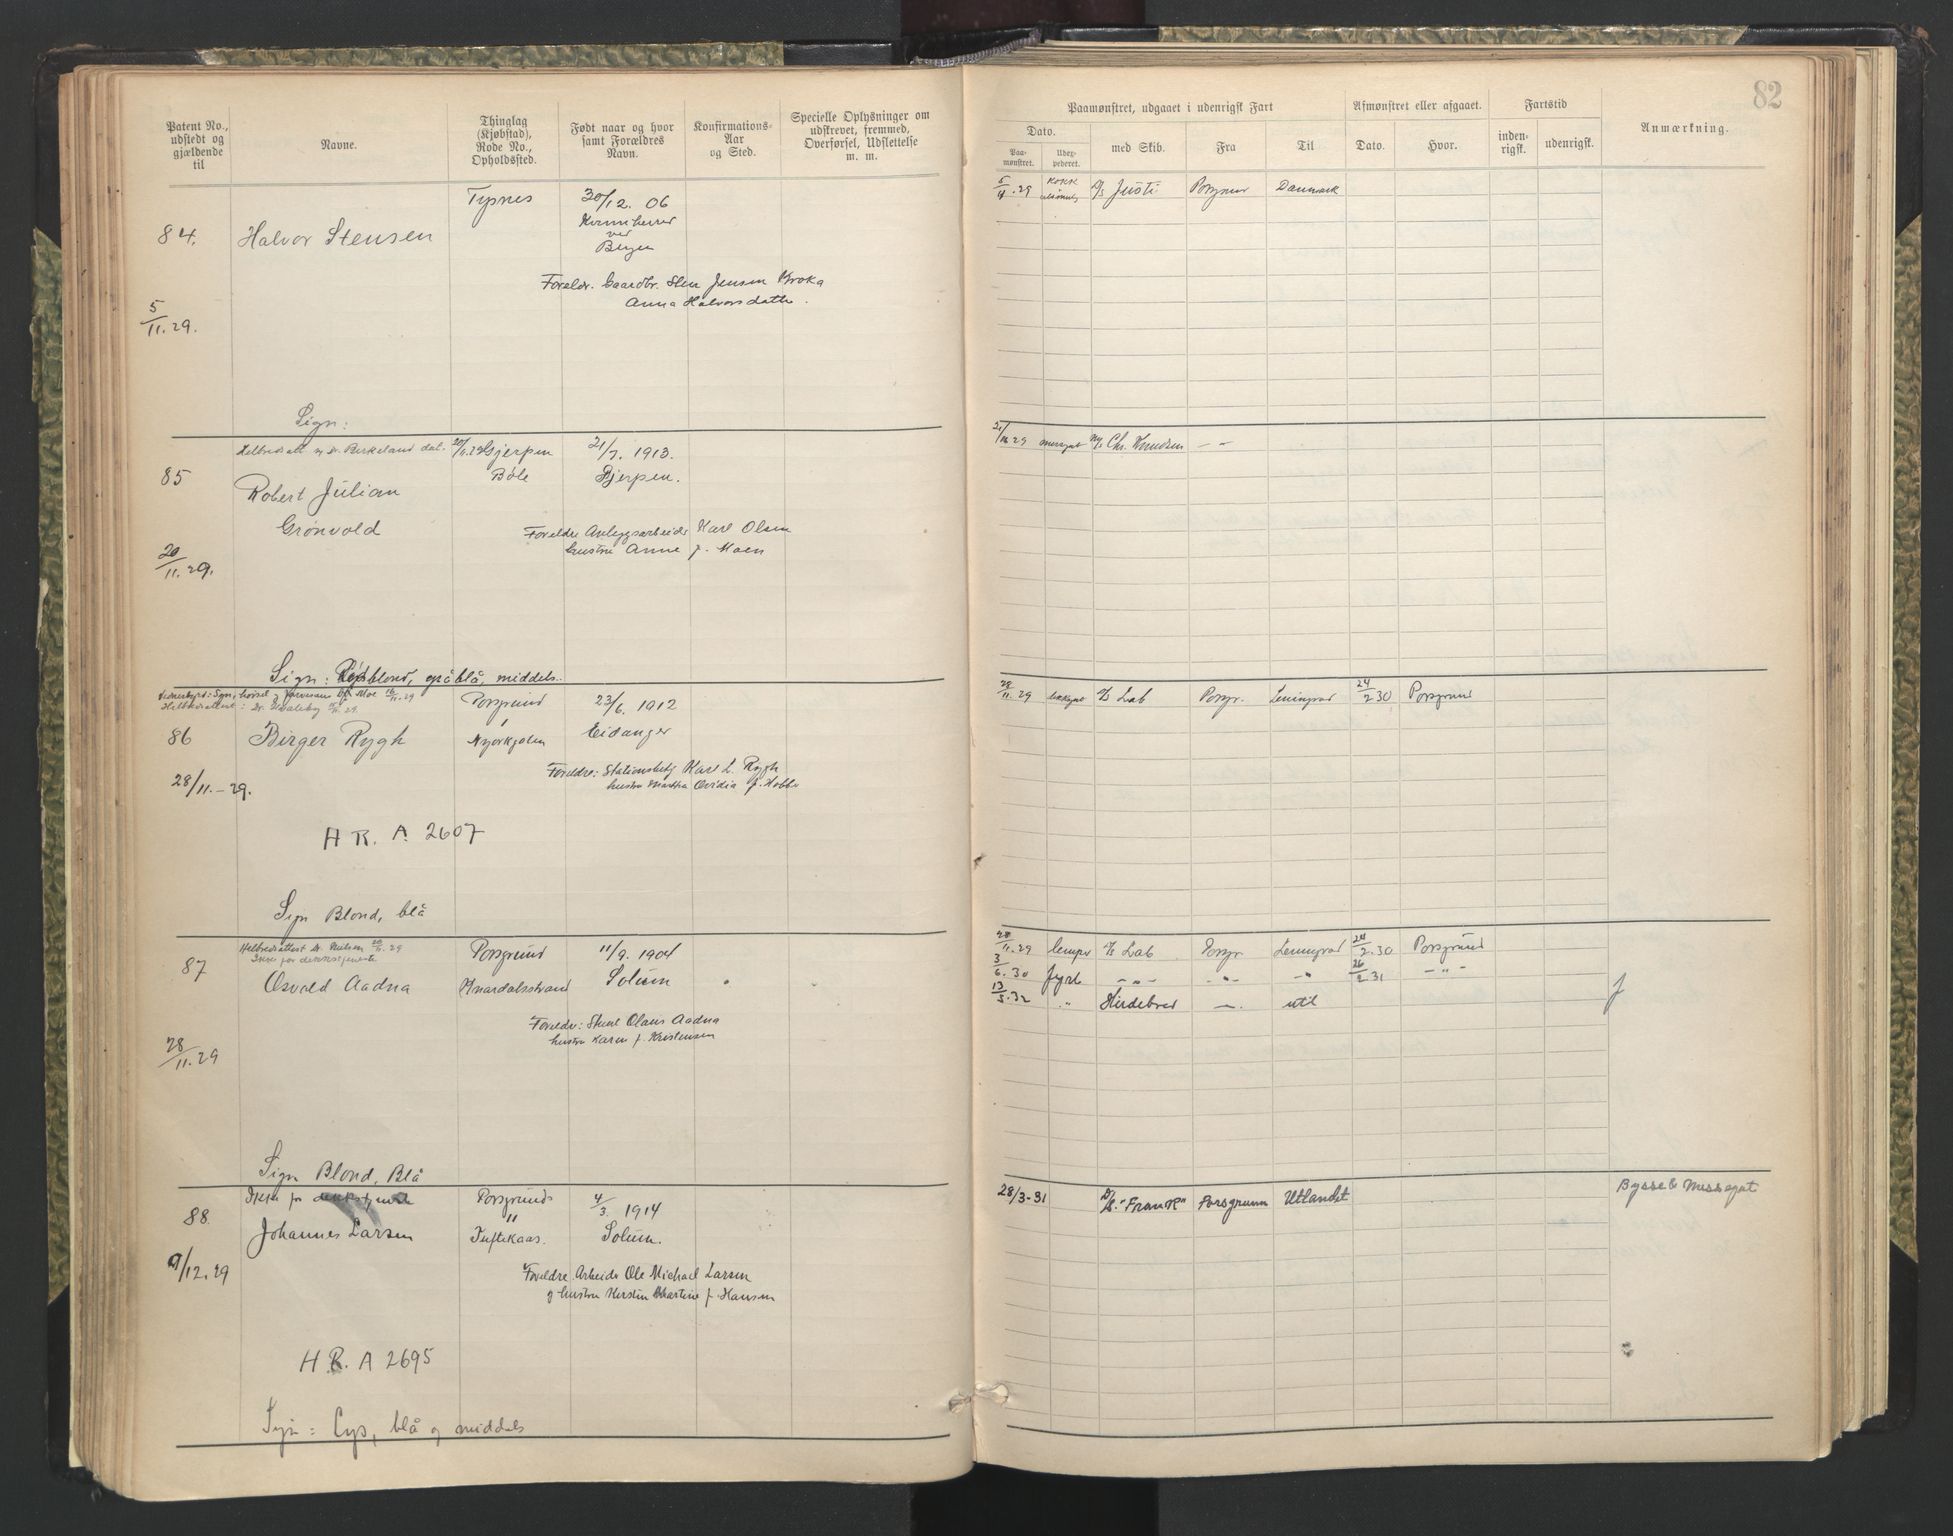 82
Patent No., udstedt og gjældende til
Navne.
Thinglag (Kjøbstad), Rode No., Opholdssted.
Født naar og hvor samt Forældres Navn.
Konfirmations-Aar og Sted.
Specielle Oplysninger om udskrevet, fremmed, Overførsel, Udslettelse m. m.
Paamønstret, udgaaet i udenrigsk Fart
Dato.
Paa-mønstret.
Udex-pederet.
med Skib.
Fra
Til
Afmønstret eller afgaaet.
Dato.
Hvor.
Fartstid
inden-rigsk.
udenrigsk.
Anmærkning.
84.
Halvor Stensen
30/12. 06
ved
Bergen
Foreldr. Gaardbr. Sten Jensen Kroka
Anna Halvorsdatter.
5/11. 29.
Sign:
29 Kokk
D/S Justi
Danmark
Helbredsatt. Dr. Birkeland dat. 20/11.29
85
Robert Julian
Grønvold
Gjerpen
Bøle
21/7. 1913.
Gjerpen.
Foreldre Anleggsarbeider Karl Olsen
hustru Anne f. Moen
20/11. 29.
Sign: Rødblond, gråblå, middels.
29 messgut M/S Chr. Knudsen — " —
86
Birger Rygh
Porsgrund
23/6. 1912
Eidanger
28/11.-29.
Foreldre: Stationsbetj Karl L. Rygh
hustru Martha Ovidia f.
H R. A 2607
Sign Blond, blå
28/11. 29 D/S Lab Porsgr. Leningrad 24/2 30 Porsgrund
Helbredsattest Dr. Nielsen 20/11. 29
Ikke for dekkstjeneste
87
Osvald Aadna
Porsgrund
Knardalsstrand
11/9. 1904
Solum
Foreldr: Skue Olaus Aadna
hustru Karen f. Kristensen
28/11. 29
Sign Blond, Blå
28/11. 29 lemper D/S Lab Porsgr. Leningrad 24/2. 30 Porsgrund
3/6. 30 fyrb — " — — " — — " — 26/2 31 — " —
13/5. 32 " Hirdebrad — " — utl
f
Ikke for dekkstjeneste
88.
Johannes Larsen
Porsgrunds
"
Tuftekaas.
4/3. 1914
Solum.
9/12. 29
Foreldre. Arbeider Ole Michael Larsen
og hustru Kirstin Martine f. Hansen
H R. A 2695
Sign: Lys, blå og middels
28/3-31 D/S. "Frank" Porsgrunn Utlandet
Bysse & Messegut